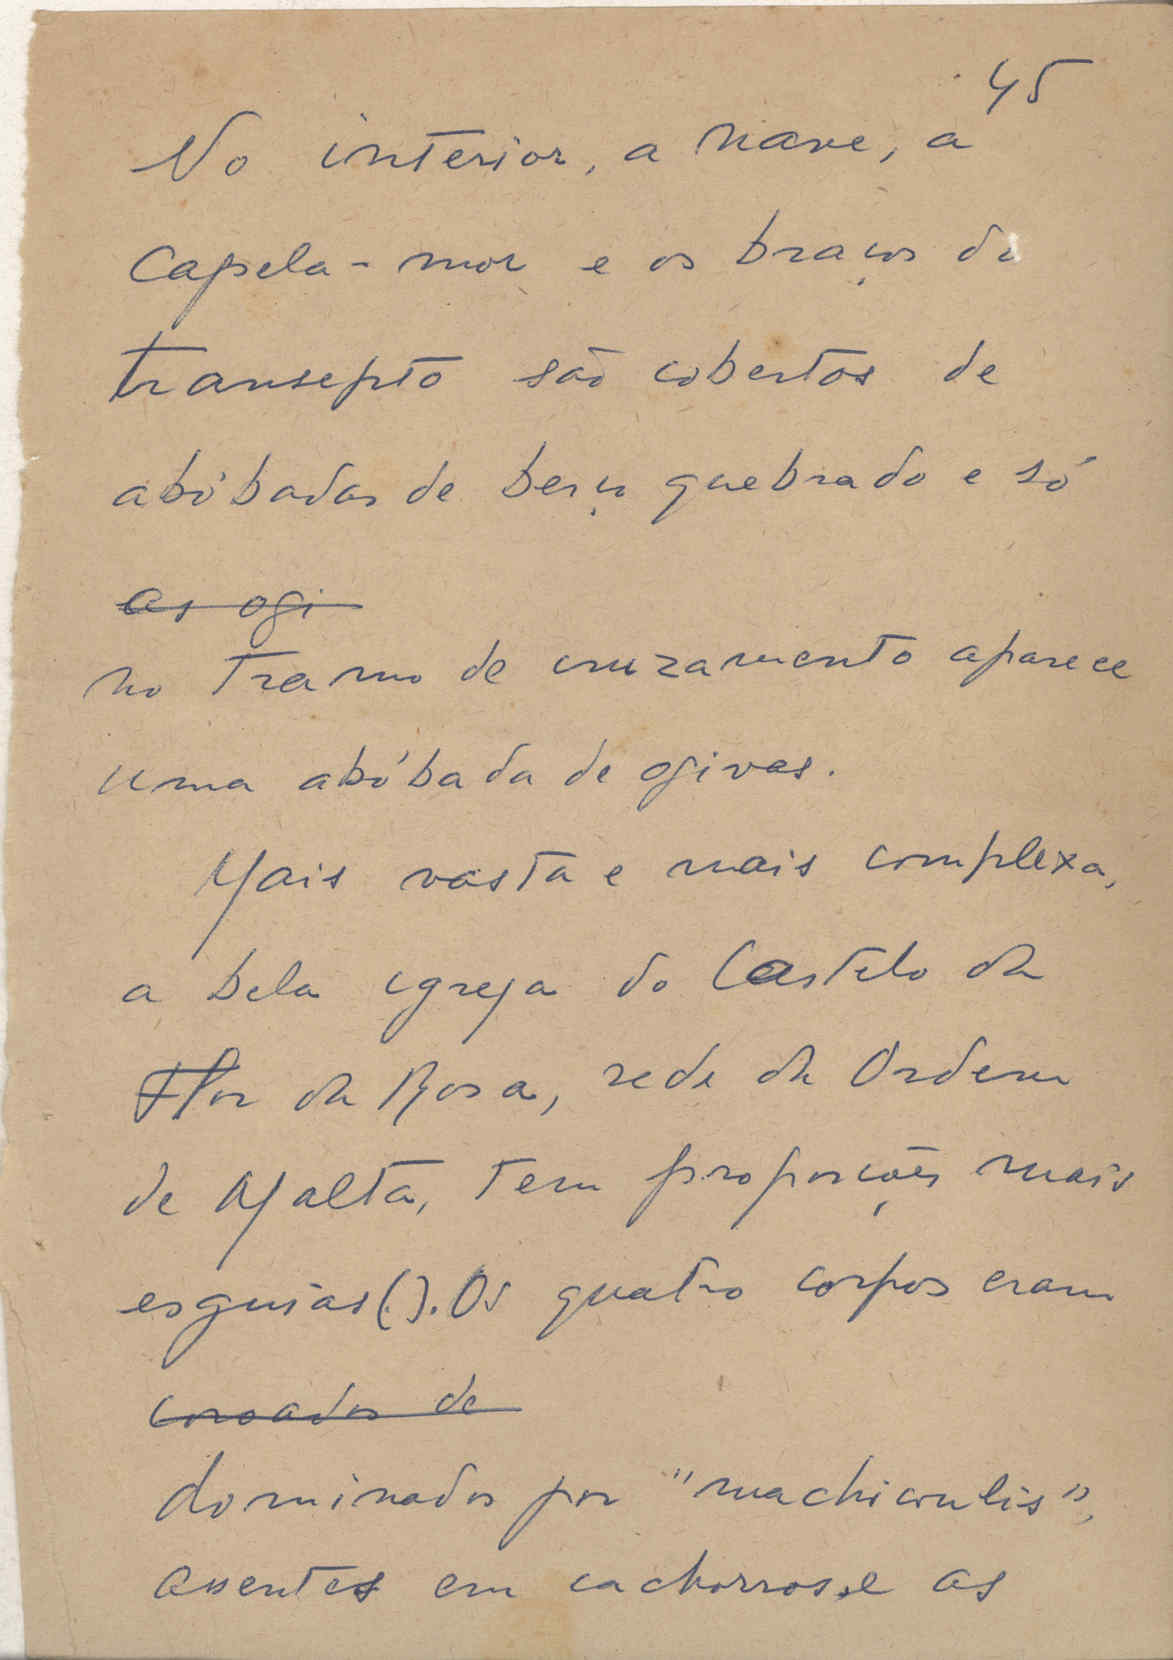 45
No interior, a nave, a
capela-mor e os braços do
transepto são cobertos de
abóbadas de berço quebrado e só
as ogi
no tramo de cruzamento aparece
uma abóbada de ogivas.
Mais vasta e mais complexa,
a bela igreja do Castelo da
Flor da Rosa, sede da Ordem
de Malta, tem proporções mais
esguias(.). Os quatro corpos eram
coroados de
dominados por "machicoulis",
assentes em cachorros, e as